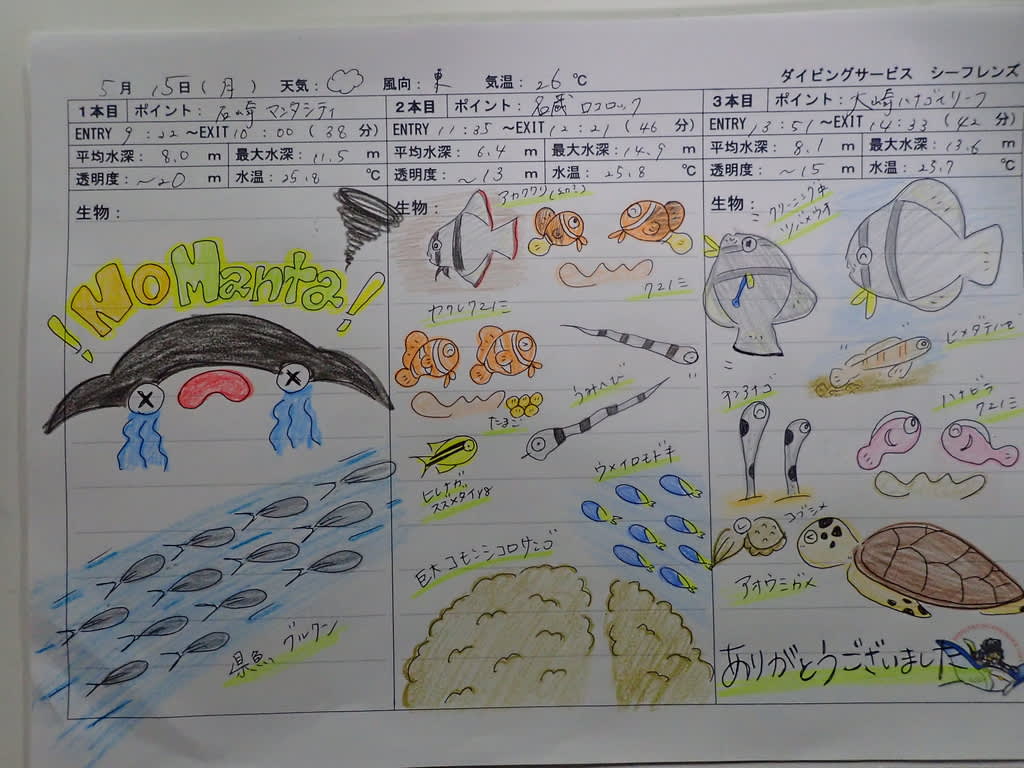 5月 15日(月) 天気: 風向: 東 気温: 26 ℃
ダイビングサービス シーフレンズ
1本目 ポイント: 石崎 マンタシティ
ENTRY 9:22 ~EXIT 10:00 (38 分)
平均水深: 8.0 m 最大水深: 11.5 m
透明度: ~20 m 水温: 25.8 ℃
生物:
NO Manta!
県魚 グルクン
2本目 ポイント: 名蔵 ロロロック
ENTRY 11:35 ~EXIT 12:21 (46 分)
平均水深: 6.4 m 最大水深: 14.9 m
透明度: ~13 m 水温: 25.8 ℃
生物:
アカククリ
クマノミ
カクレクマノミ
たまご
うみへび
ヒレナガ
スズメダイyg
ウメイロモドキ
巨大コモンシコロサンゴ
3本目 ポイント: 大崎ハナゴイリーフ
ENTRY 13:51 ~EXIT 14:33 (42 分)
平均水深: 8.1 m 最大水深: 13.6 m
透明度: ~15 m 水温: 25.7 ℃
生物:
クリーニング中
ツバメウオ
ヒメダテハゼ
チンアナゴ
ハナビラ
クマノミ
コブシメ
アオウミガメ
ありがとうございました